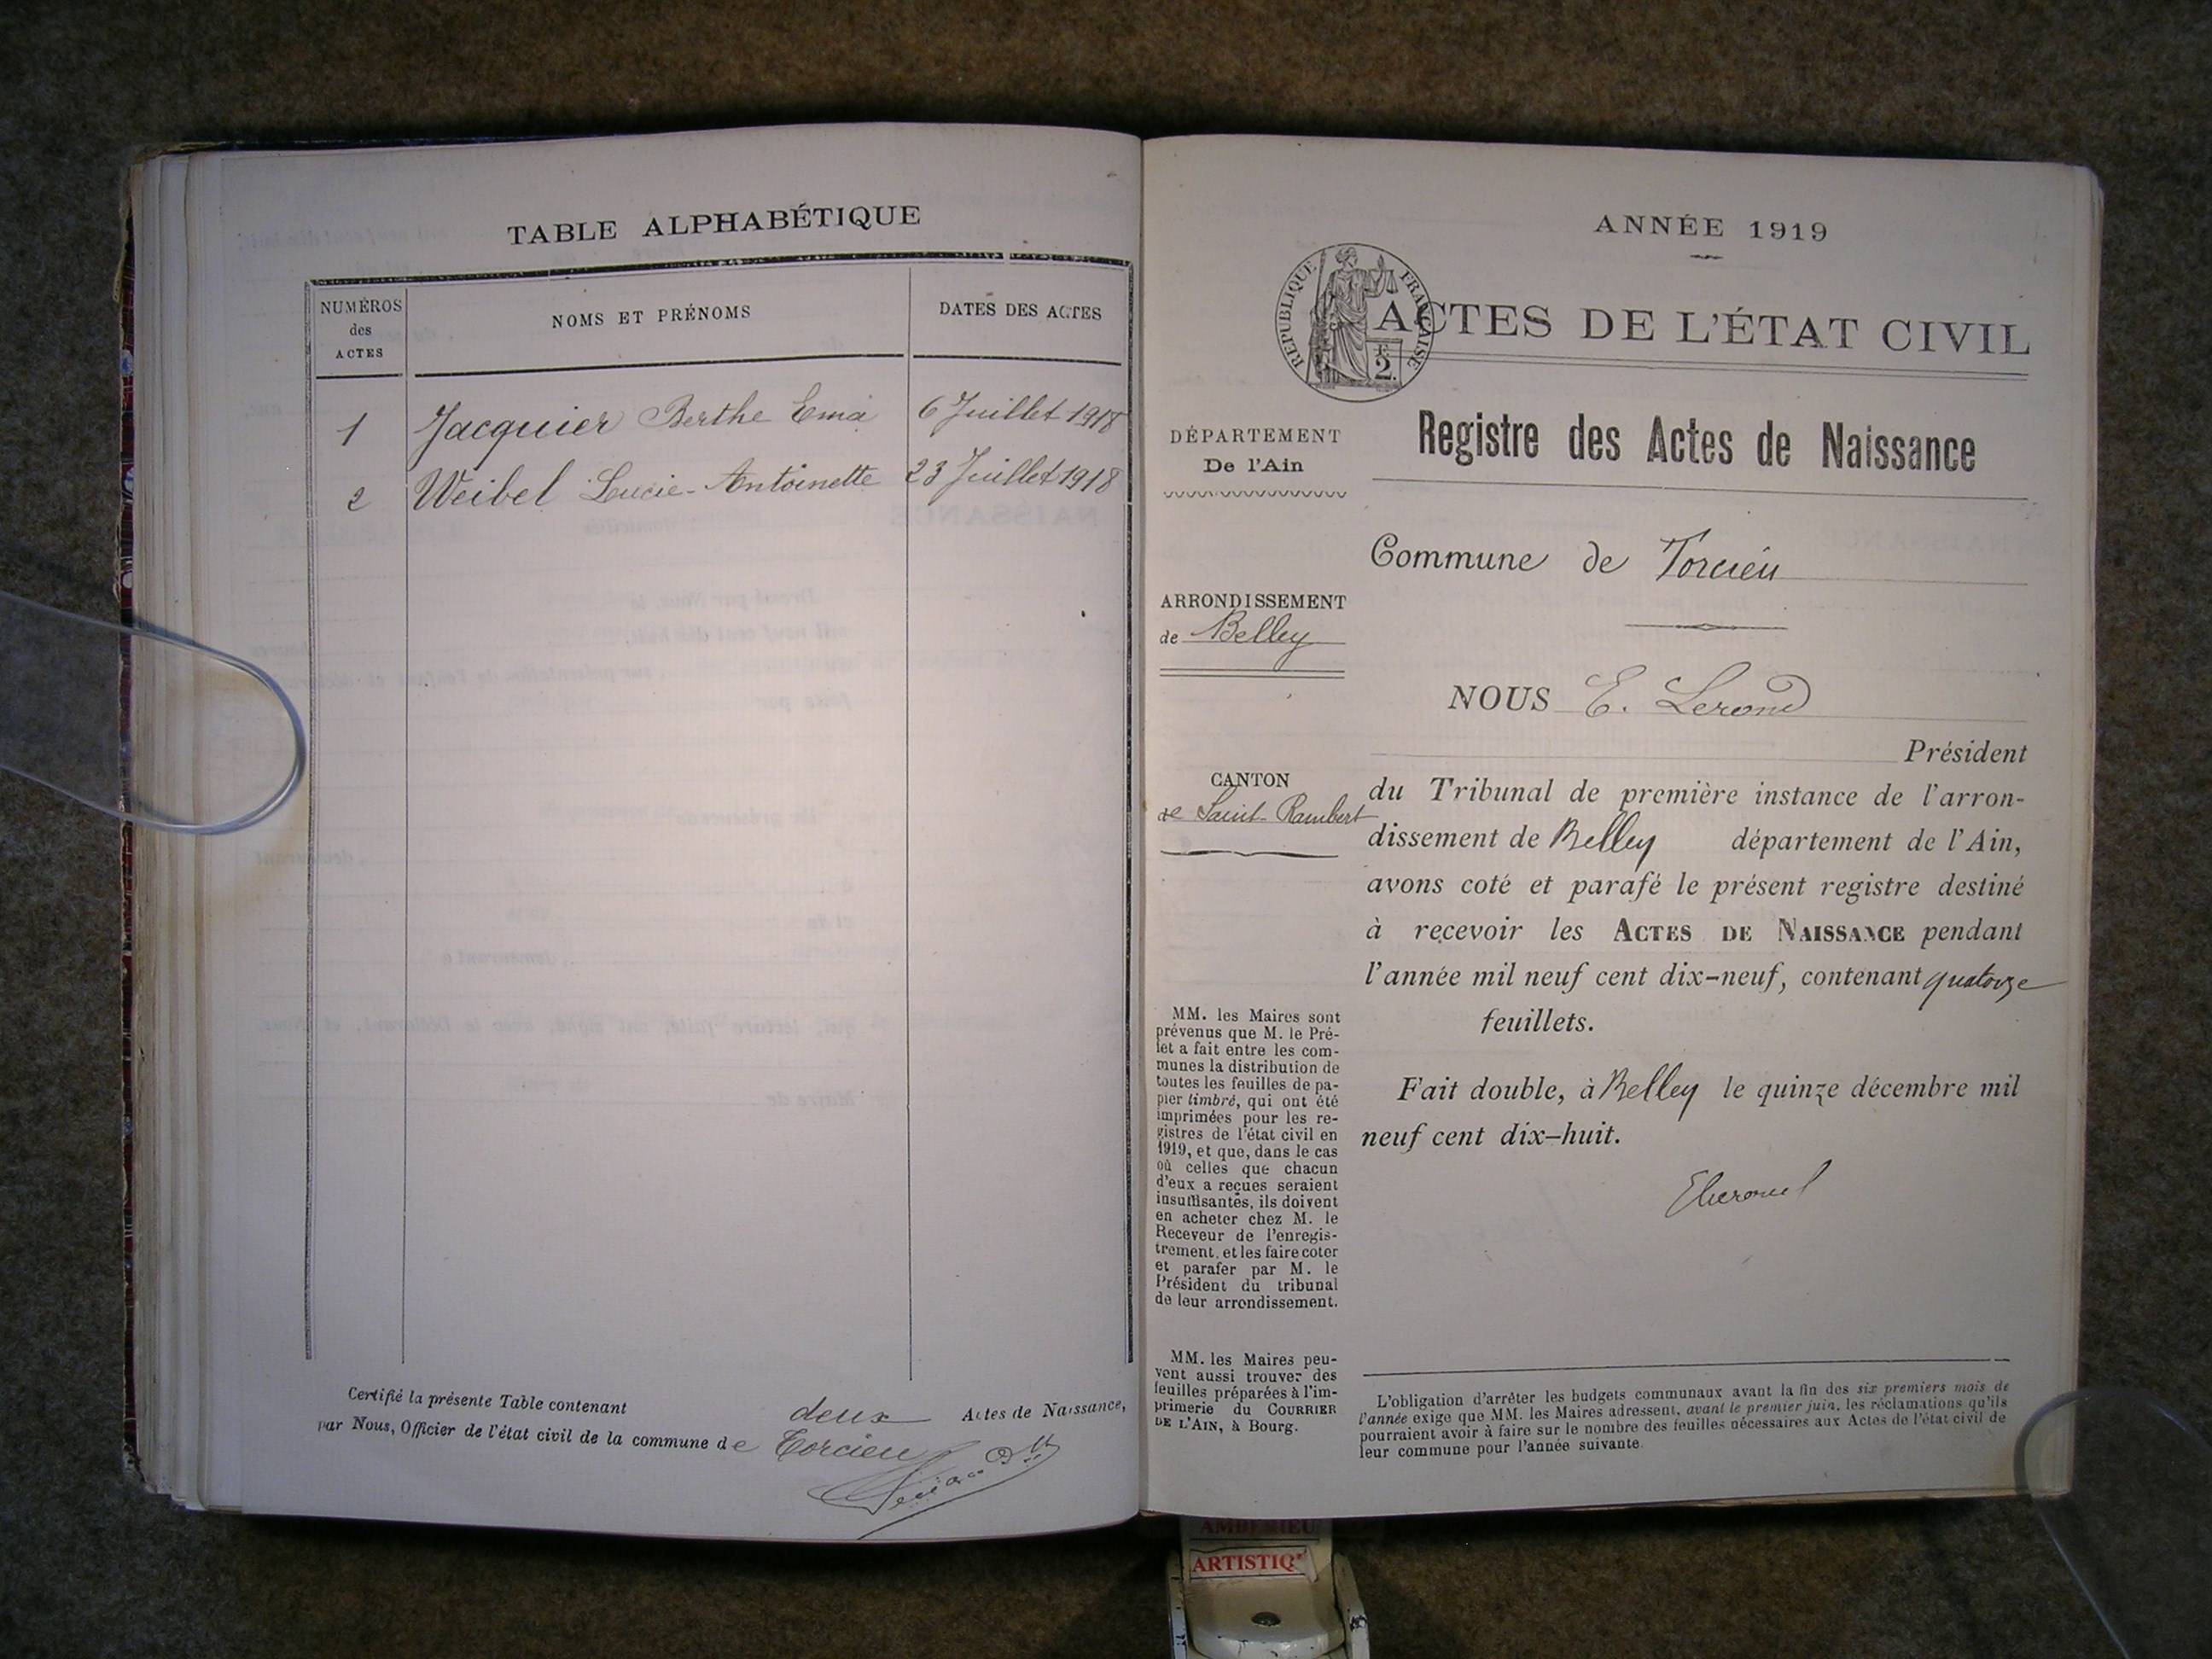 TABLE ALPHABÉTIQUE
NUMÉROS
des
ACTES
NOMS ET PRÉNOMS
DATES DES ACTES
1 Jacquier Berthe Ema 6 Juillet 1918
2 Weibel Lucie-Antoinette 23 Juillet 1918
Certifié la présente Table contenant deux Actes de Naissance,
par Nous, Officier de l'état civil de la commune de Torcieu
ANNÉE 1919
RÉPUBLIQUE FRANÇAISE
2.
ACTES DE L'ÉTAT CIVIL
Registre des Actes de Naissance
DÉPARTEMENT
De l'Ain
ARRONDISSEMENT
de Belley
CANTON
de Saint-Rambert
MM. les Maires sont
prévenus que M. le Pré-
fet a fait entre les com-
munes la distribution de
toutes les feuilles de pa-
pier timbré, qui ont été
imprimées pour les re-
gistres de l'état civil en
1919, et que, dans le cas
où celles que chacun
d'eux a reçues seraient
insuffisantes, ils doivent
en acheter chez M. le
Receveur de l'enregis-
trement, et les faire coter
et parafer par M. le
Président du tribunal
de leur arrondissement.
MM. les Maires peu-
vent aussi trouver des
feuilles préparées à l'im-
primerie du COURRIER
DE L'AIN, à Bourg.
Commune de Torcieu
NOUS E. Lerond
Président
du Tribunal de première instance de l'arron-
dissement de Belley département de l'Ain,
avons coté et parafé le présent registre destiné
à recevoir les ACTES DE NAISSANCE pendant
l'année mil neuf cent dix-neuf, contenant quatorze
feuillets.
Fait double, à Belley le quinze décembre mil
neuf cent dix-huit.
L'obligation d'arrêter les budgets communaux avant la fin des six premiers mois de
l'année exige que MM. les Maires adressent, avant le premier juin, les réclamations qu'ils
pourraient avoir à faire sur le nombre des feuilles nécessaires aux Actes de l'état civil de
leur commune pour l'année suivante.
AMBERIEU
ARTISTIQ